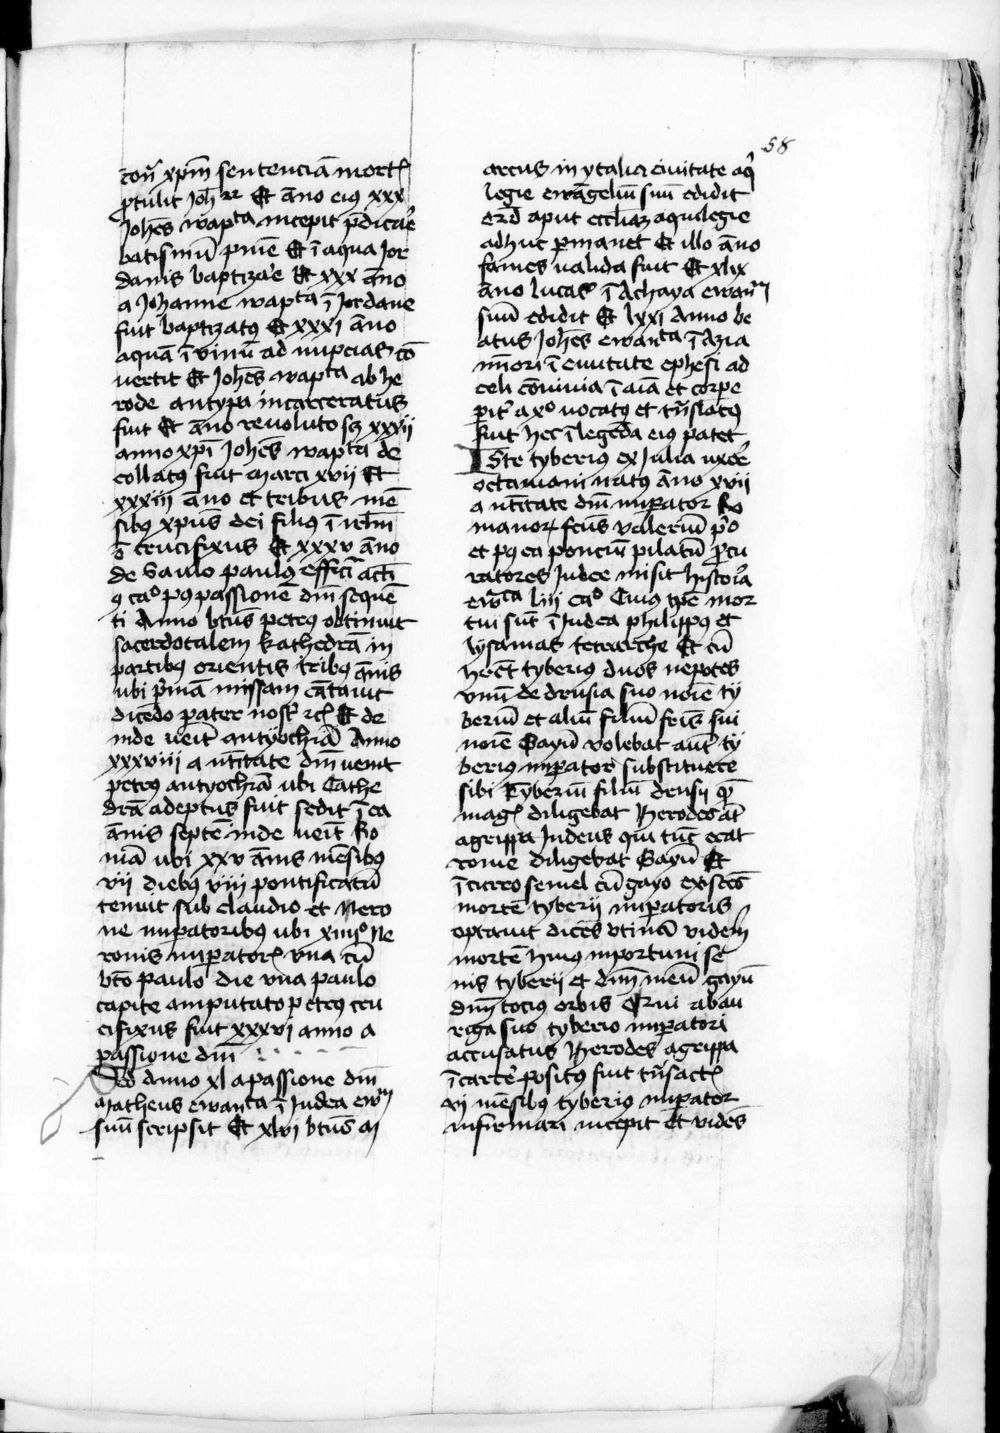 58
contra xpm sentenciam mortis
protulit Joh xix Et ano eius xxx
Johes wapta incepit predicare
batismu pnie Et i aqua Jor
danis baptizare Et xxx ano
a Johanne wapta i Jordane
fuit baptizatus Et xxxi ano
aqua i vinu ad nupcias co
uertit Et Johes wapta ab he
rode antypa incarceratus
fuit Et ano reuoluto sz xxxii
anno xpi Johes wapta de
collatus fuit marci xvii Et
xxxiii ano et tribus me
sibus xpus dei filius i irlm
e crucifixus Et xxxv ano
de Saulo paulus effict acti
9 cao pus passione dni seque
ti Anno btus petrus obtinuit
sacerdotalem kathedra in
partibus orientis tribus annis
ubi prima missam cantauit
dicedo pater nostr rc Et de
inde ueit antyochia Anno
xxxviii a ntitate dni uenit
petrus antyochia ubi Cathe
dra adeptus fuit sedit i ea
annis septe inde ueit Ro
ma ubi xxv annis mesibus
vii diebus viii pontificatu
tenuit sub claudio et Nero
ne imperatoribus ubi xiiiio Ne
ronis imperatoris vna cu
bto paulo die vna paulo
capite amputato petrus cru
cifixus fuit xxxvi anno a
passione dni
Ad anno xl a passione dni
Matheus ewanta i Judea ewm
suu scripsit Et xlvi btus m
arcus in ytalia ciuitate aqi
legie ewangeliu suu edidit
et aput eccliaz aquilegie
adhuc permanet Et illo ano
fames ualida fuit Et xlix
ano lucas i Achaya ewam
suu edidit Et lxxi Anno be
atus Johes ewanta i Azia
mori i ciuitate ephesi ad
celi conuiuia i aia et corpe
perit a xo uocatus et tnslatus
fuit hec i legenda eius patet
Iste tyberius ex Julia uxore
octauiani natus ano xvii
a ntitate dni imperator Ro
manor fcus valeriu pro
et pus ea ponciu pilatu procu
ratores Judee misit historia
ewca liii cao Cuius tpe mor
tui sut i Judea philippus et
lysamas tetrarche Et cu
hret tyberius duos nepotes
vnu de drusia suo noie ty
beriu et aliu filiu fris sui
noie Gayu volebat aut ty
berius imperator substituere
sibi Tyberiu filiu drusii quem
magis diligebat Herodes at
agrippa Judeus qui tuc erat
rome diligebat Gayu Et
i curro semel cu gayo existes
morte tyberii imperatoris
optauit dices vtina videm
morte huius inportuni se
nis tyberii et dnm meu gayu
dnm tocius orbis Qui ab au
riga suo tyberio imperatori
accusatus Herodes agrippa
i carcere positus fuit tnsactis
vi mesibus tyberius imperator
infirmari incepit Et vides